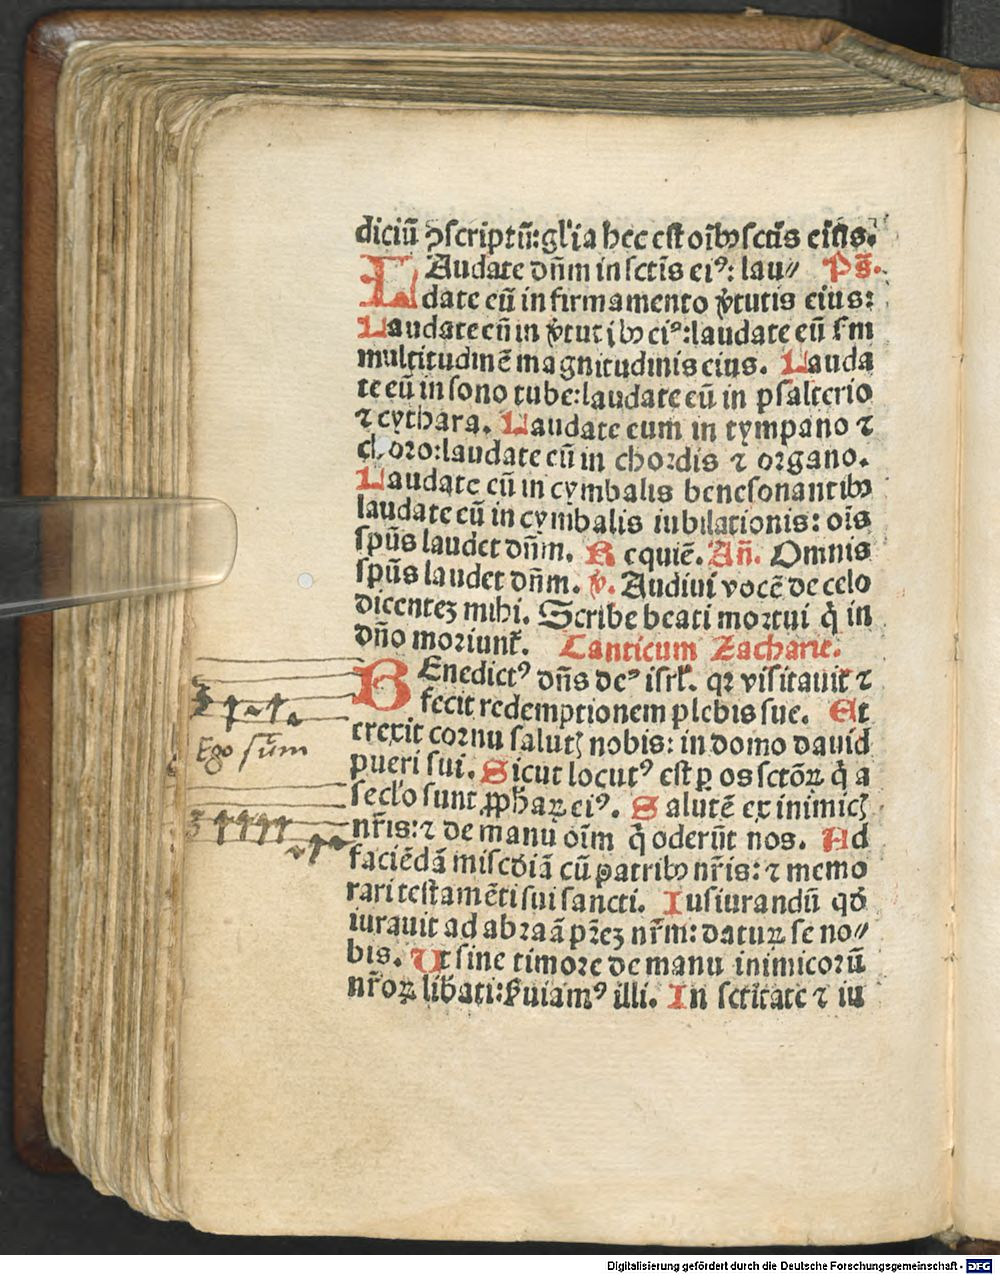 diciū ↄscriptū: gl'ia hec est oībꝰ sctīs eiꝰs.
LAudate dn̄m in sctīs ei⁹: lau// Ps̄.
date eū in firmamento v̓tutis eius:
Laudate eū in v̓tutibꝫ ei⁹: laudate eū s̄m
multitudinē magnitudinis eius. Lauda
te eū in sono tube: laudate eū in psalterio
⁊ cythara. Laudate eum in tympano ⁊
choro: laudate eū in chordis ⁊ organo.
Laudate eū in cymbalis benesonantibꝫ
laudate eū in cymbalis iubilationis: oīs
spūs laudet dn̄m. Requiē. An̄. Omnis
spūs laudet dn̄m. v̓. Audiui vocē de celo
dicenteꝫ mihi. Scribe beati mortui q̇ in
dn̄o moriunt̄. Canticum Zacharie.
BEnedict⁹ dn̄s de⁹ isrl̄. qꝛ visitauit ⁊
fecit redemptionem plebis sue. Et
erexit cornu salutꝭ nobis: in domo dauid
pueri sui. Sicut locut⁹ est ꝑ os sctōꝝ q̇ a
seclo sunt ꝓph̄aꝝ ei⁹. Salutē ex inimicꝭ
nr̄is: ⁊ de manu oīm q̇ oderūt nos. Ad
faciēdā misc̄diā cū patribꝫ nr̄is: ⁊ memo
rari testamēti sui sancti. Iusiurandū qd̄
iurauit ad abraā pr̄eꝫ nr̄m: daturꝫ se no//
bis. Ut sine timore de manu inimicorū
nr̄oꝝ lib̄ati: s̓uiam⁹ illi. In sctītate ⁊ iu
Ego sum
Digitalisierung gefördert durch die Deutsche Forschungsgemeinschaft - DFG